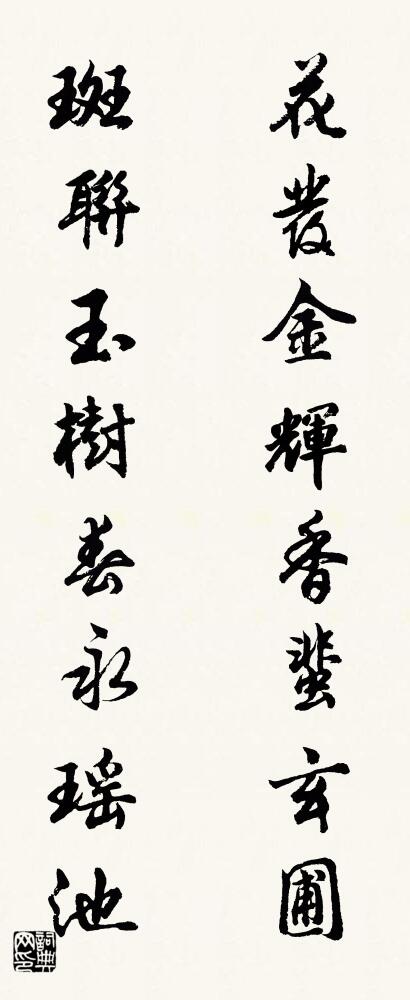 花發金輝香蜚玄圃
斑聯玉樹春永瑤池
詞典网印